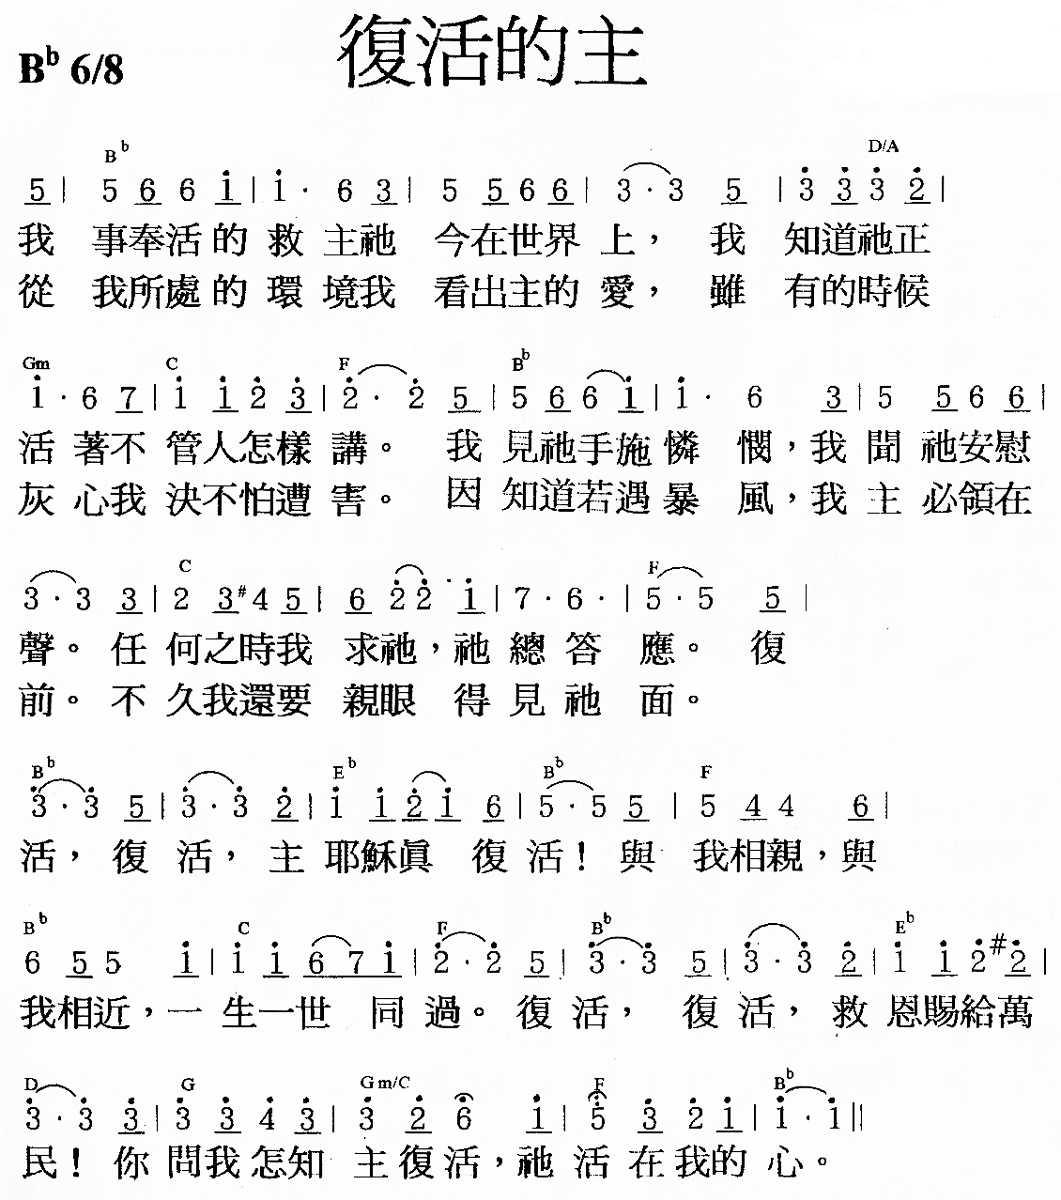 復活的主
B♭ 6/8
B♭ D/A
5 | 5 6 6 i | i · 6 3 | 5 5 6 6 | 3 · 3 5 | 3̇ 3̇ 3̇ 2̇ |
我 事奉活的救 主祂 今在世界 上， 我 知道祂正
從 我所處的環 境我 看出主的 愛， 雖 有的時候
Gm C F B♭
i · 6 7 | i i 2̇ 3̇ | 2̇ · 2̇ 5 | 5 6 6 i | i · 6 3 | 5 5 6 6 |
活 著不 管人怎樣 講。 我 見祂手施憐 憫，我 聞 祂安慰
灰 心我 決不怕遭 害。 因 知道若遇暴 風，我 主 必領在
C F
3 · 3 3 | 2 3 #4 5 | 6 2̇ 2̇ · i | 7 · 6 · | 5 · 5 5 |
聲。任 何之時我 求祂，祂 總 答 應。 復
前。不 久我還要 親眼 得 見 祂 面。
B♭ E♭ B♭ F
3̇ · 3̇ 5 | 3̇ · 3̇ 2̇ | i i 2̇ i 6 | 5 · 5 5 | 5 4 4 6 |
活， 復 活， 主 耶穌眞 復 活！與 我相親，與
B♭ C F B♭ E♭
6 5 5 i | i i 6 7 i | 2̇ · 2̇ 5 | 3̇ · 3̇ 5 | 3̇ · 3̇ 2̇ | i i 2̇ #2̇ |
我相近，一 生一世 同 過。復 活， 復 活， 救 恩賜給萬
D G Gm/C F B♭
3̇ · 3̇ 3̇ | 3̇ 3̇ 4̇ 3̇ | 3̇ 2̇ 6 i | 5̇ 3̇ 2̇ i | i · i ||
民！你 問我怎知 主復活，祂 活 在我的 心。